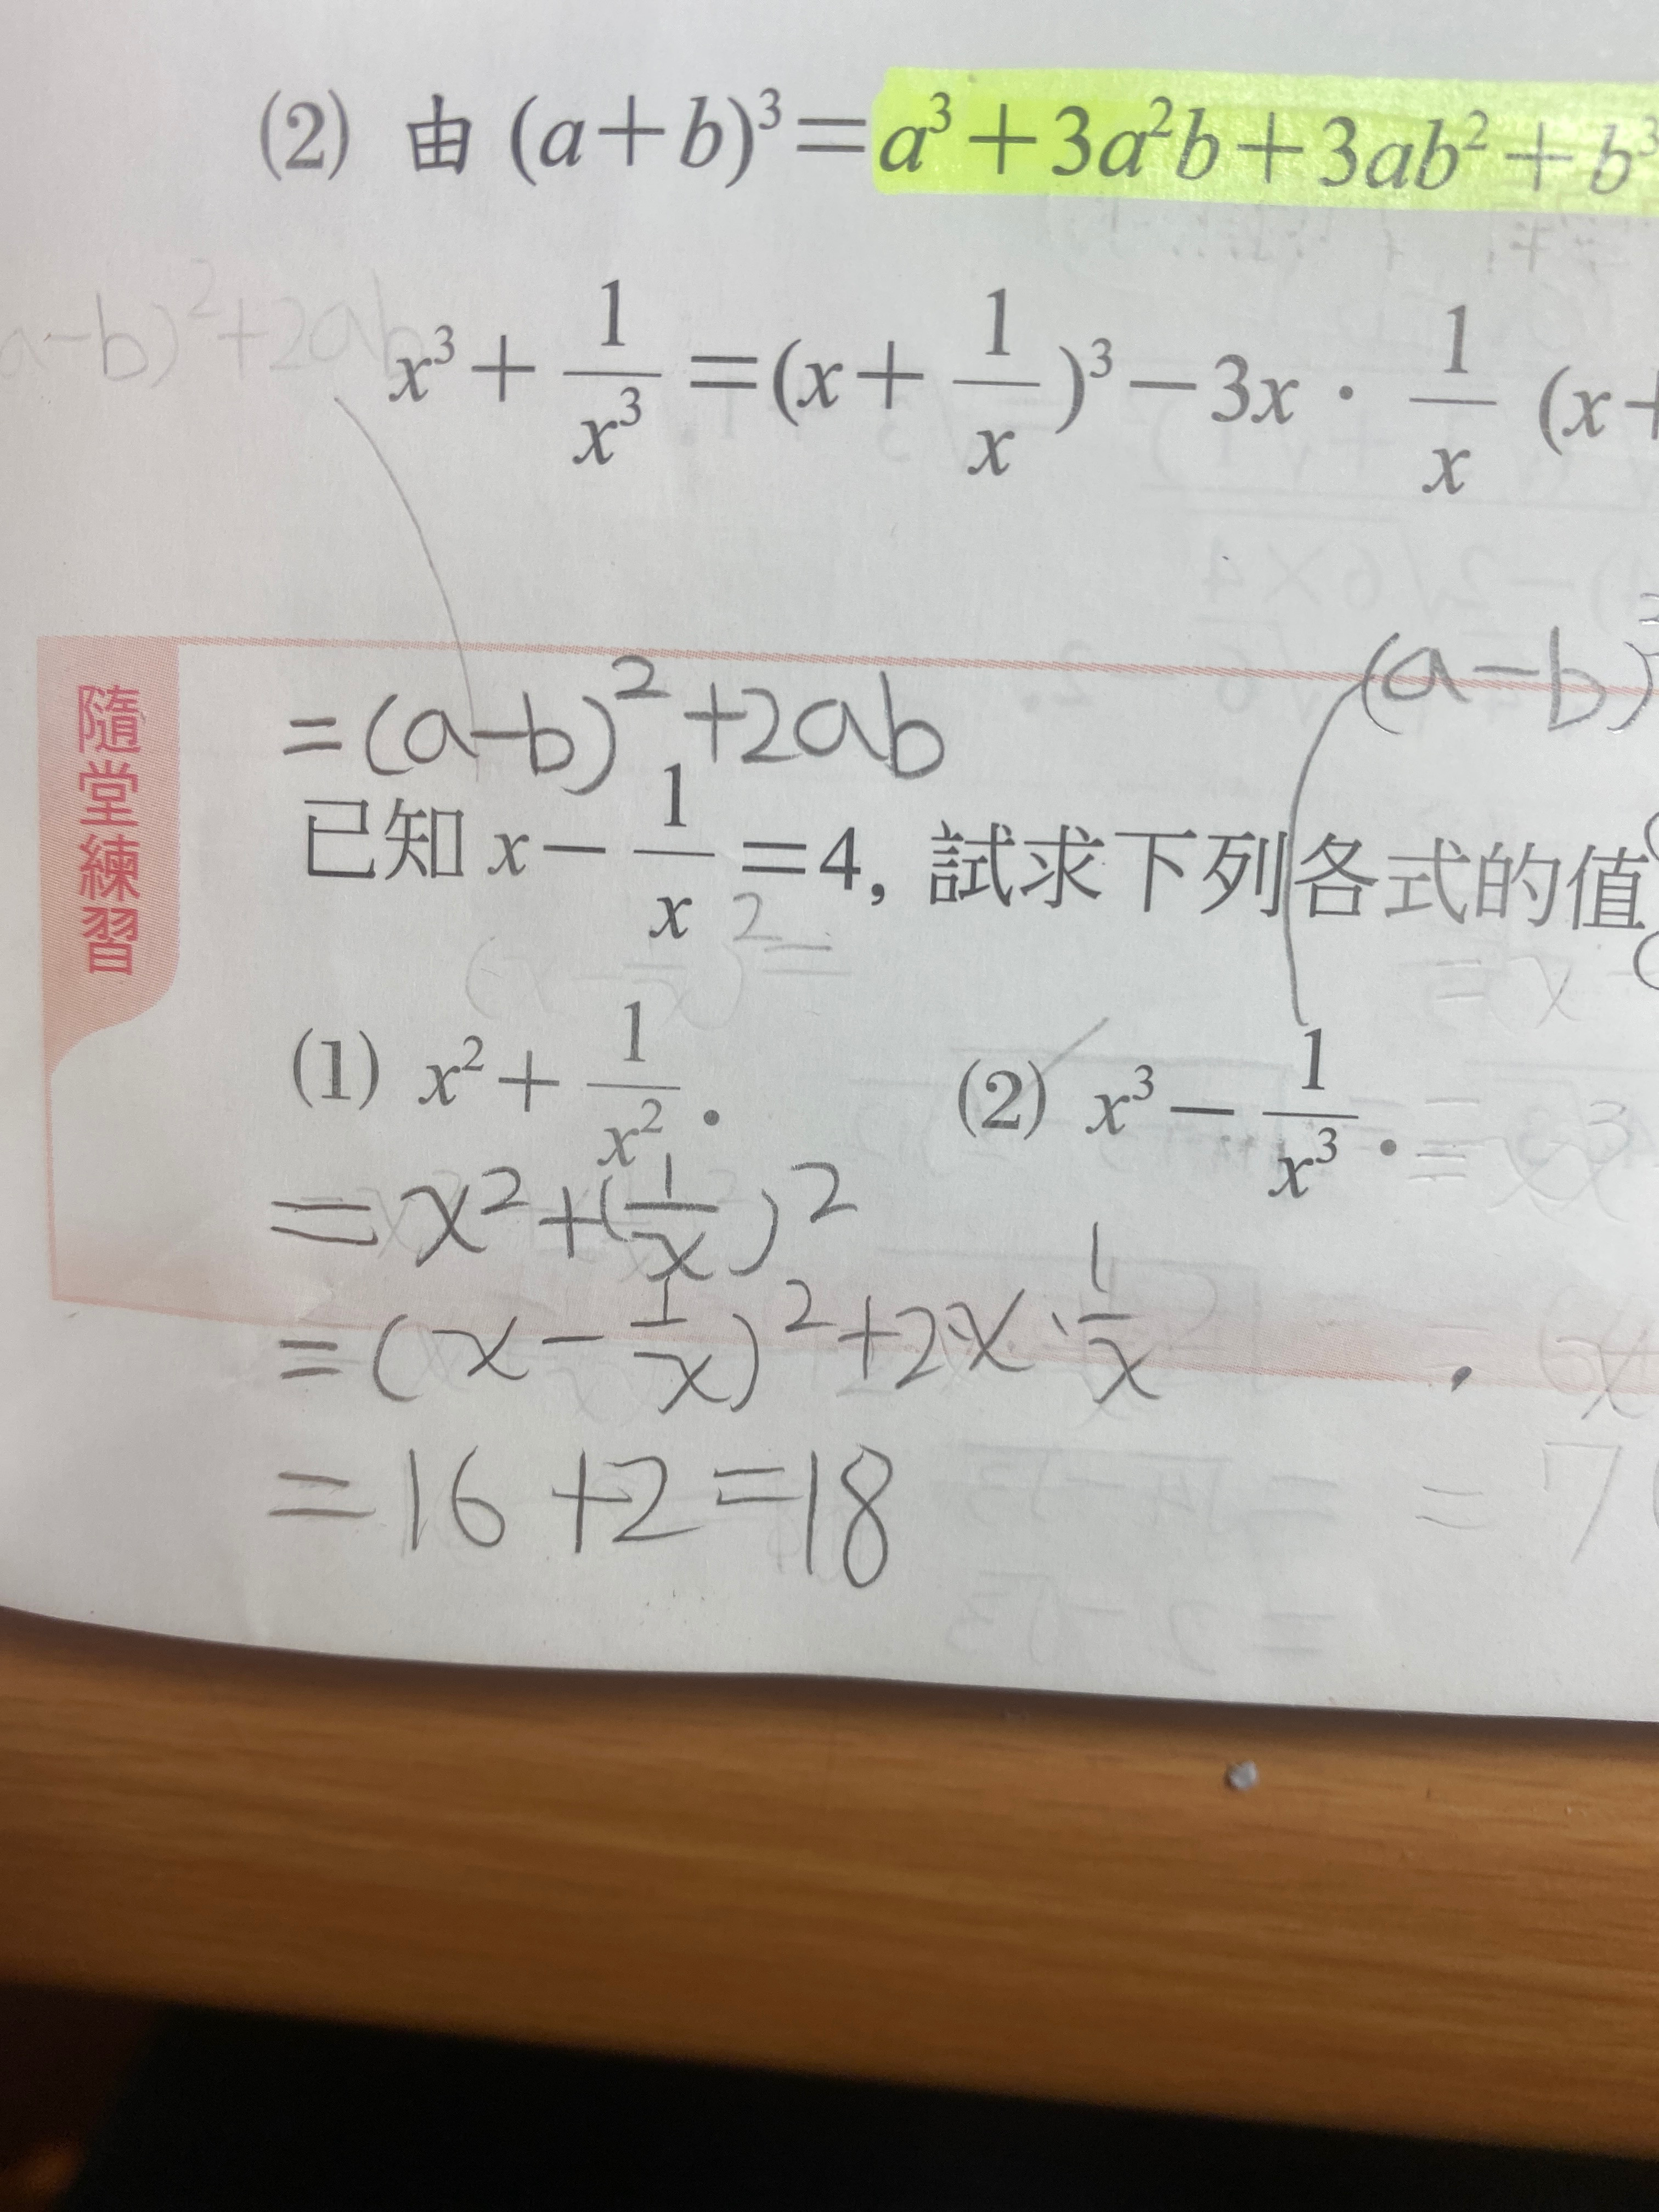 (2) 由 (a+b)³=a³+3a²b+3ab²+b³
(a-b)²+2ab
x³+1/x³=(x+1/x)³-3x·1/x (x+
隨堂練習
=(a-b)²+2ab
(a-b)
已知 x-1/x=4, 試求下列各式的值
(1) x²+1/x².
(2) x³-1/x³.
=x²+(1/x)²
=(x-1/x)²+2x·1/x
=16+2=18
=7